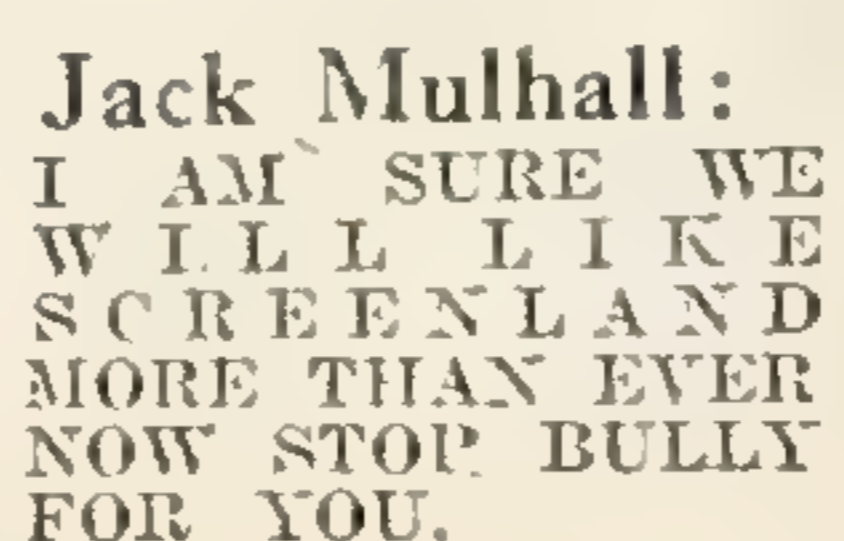 Jack Mulhall:
I AM SURE WE
WILL LIKE
SCREENLAND
MORE THAN EVER
NOW STOP BULLY
FOR YOU.